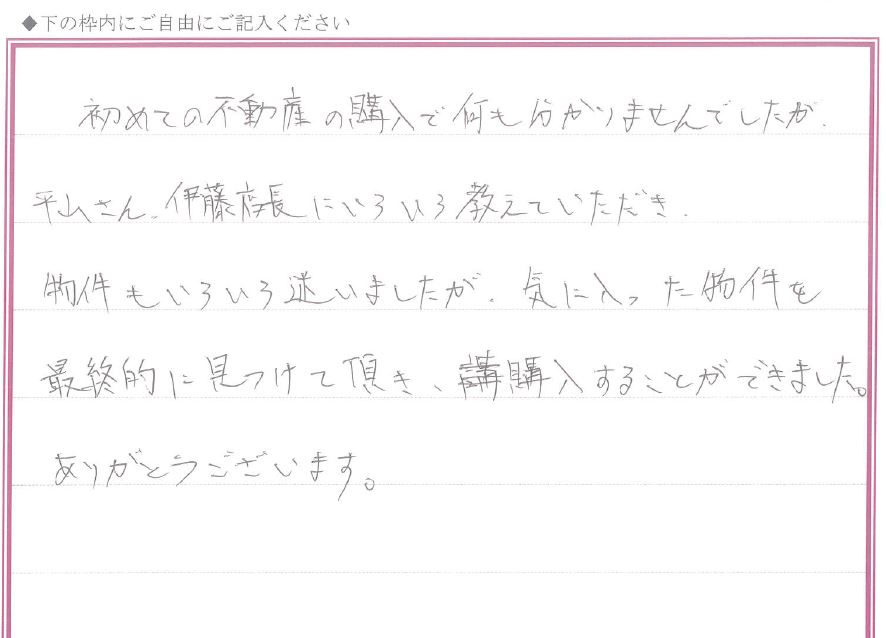 ◆下の枠内にご自由にご記入ください
初めての不動産の購入で何も分かりませんでしたが、
平山さん、伊藤店長にいろいろ教えていただき、
物件もいろいろ迷いましたが、気に入った物件を
最終的に見つけて頂き、購入することができました。
ありがとうございます。